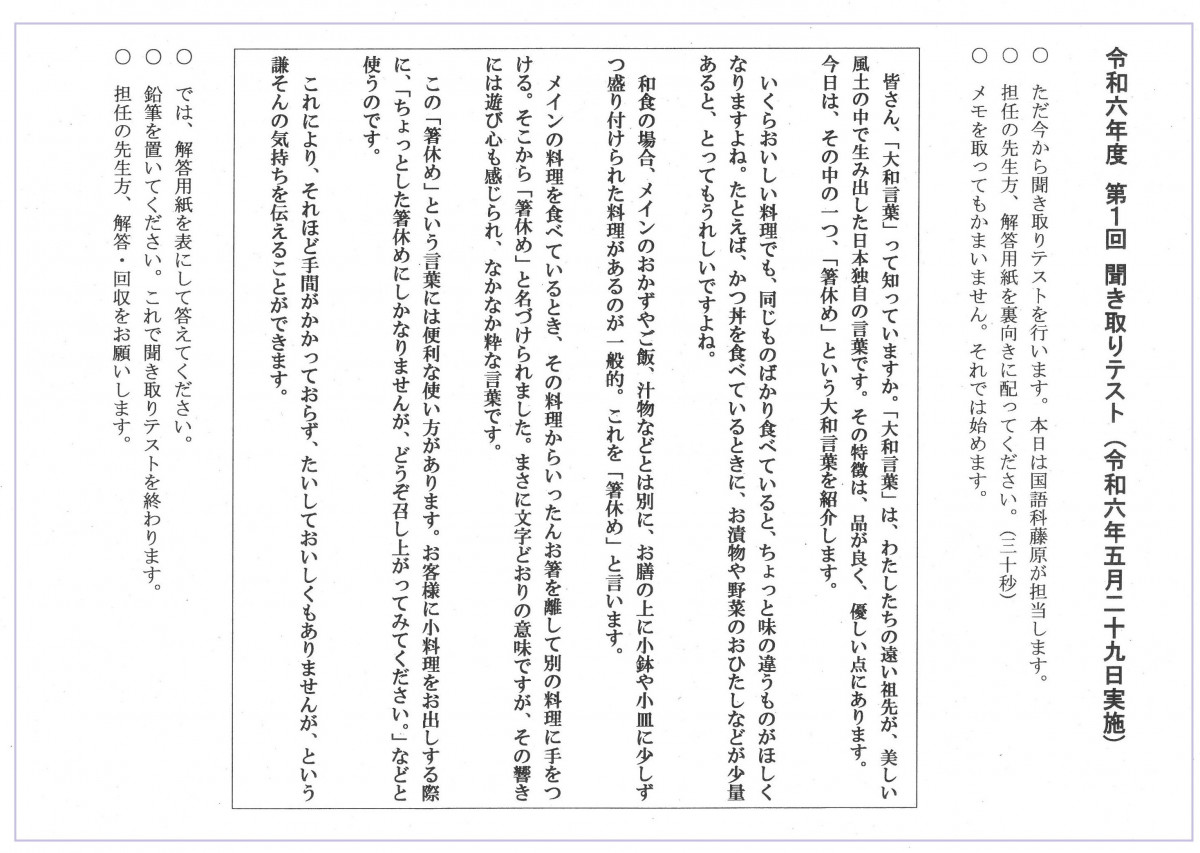 令和六年度　第１回　聞き取りテスト（令和六年五月二十九日実施）
○　ただ今から聞き取りテストを行います。本日は国語科藤原が担当します。
○　担任の先生方、解答用紙を裏向きに配ってください。（三十秒）
○　メモを取ってもかまいません。それでは始めます。
皆さん、「大和言葉」って知っていますか。「大和言葉」は、わたしたちの遠い祖先が、美しい
風土の中で生み出した日本独自の言葉です。その特徴は、品が良く、優しい点にあります。
今日は、その中の一つ、「箸休め」という大和言葉を紹介します。
いくらおいしい料理でも、同じものばかり食べていると、ちょっと味の違うものがほしく
なりますよね。たとえば、かつ丼を食べているときに、お漬物や野菜のおひたしなどが少量
あると、とってもうれしいですよね。
和食の場合、メインのおかずやご飯、汁物などとは別に、お膳の上に小鉢や小皿に少しず
つ盛り付けられた料理があるのが一般的。これを「箸休め」と言います。
メインの料理を食べているとき、その料理からいったんお箸を離して別の料理に手をつ
ける。そこから「箸休め」と名づけられました。まさに文字どおりの意味ですが、その響き
には遊び心も感じられ、なかなか粋な言葉です。
この「箸休め」という言葉には便利な使い方があります。お客様に小料理をお出しする際
に、「ちょっとした箸休めにしかなりませんが、どうぞ召し上がってみてください。」などと
使うのです。
これにより、それほど手間がかかっておらず、たいしておいしくもありませんが、という
謙そんの気持ちを伝えることができます。
○　では、解答用紙を表にして答えてください。
○　鉛筆を置いてください。これで聞き取りテストを終わります。
○　担任の先生方、解答・回収をお願いします。